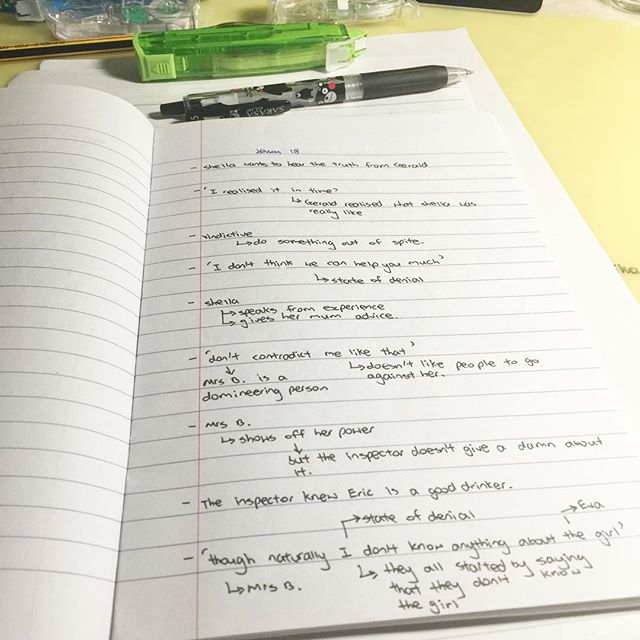 SARASA
Lesson 18
- sheila wants to hear the truth from Gerald
- 'I realised it in time?
↳ Gerald realised what sheila was
really like
- vindictive
↳ do something out of spite.
- 'I don't think we can help you much'
↳ state of denial
- sheila
↳ speaks from experience
↳ gives her mum advice.
- 'don't contradict me like that'
↓ ↳ doesn't like people to go
Mrs B. is a against her.
domineering person
- Mrs B.
↳ shows off her power
↓
but the inspector doesn't give a damn about
it.
- The inspector knew Eric is a good drinker.
→ state of denial → Eva
- 'though naturally I don't know anything about the girl'
↳ Mrs B. ↳ they all started by saying
that they don't know
the girl